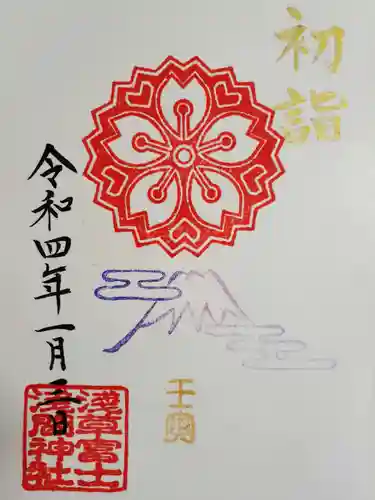 初詣
壬寅
令和四年一月三日
淺草富士
浅間神社